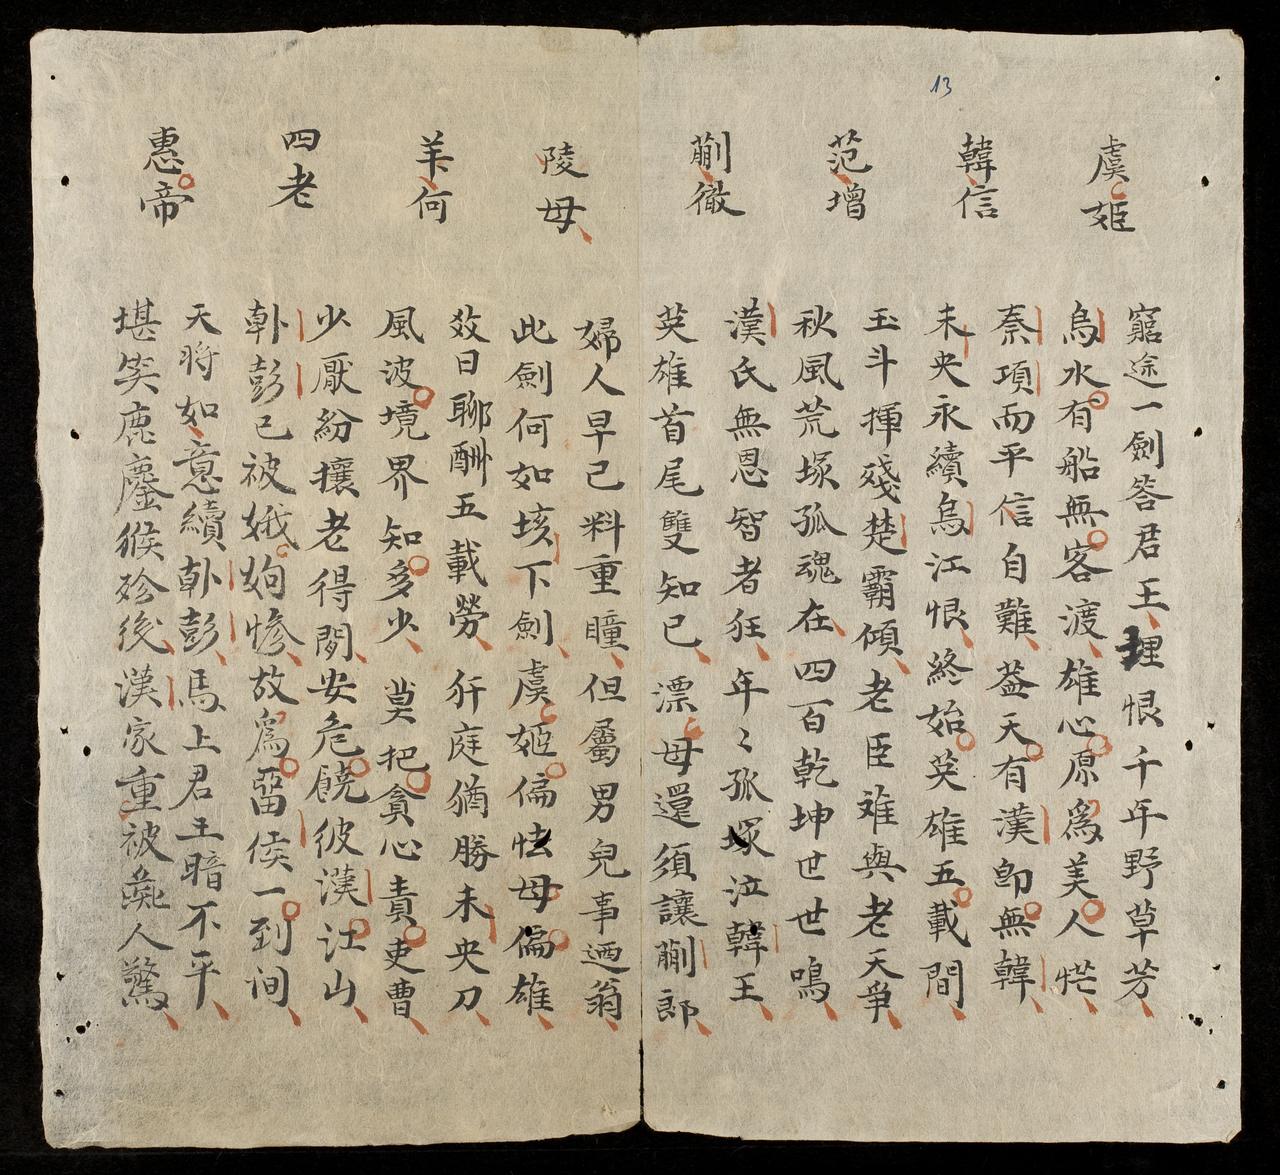 13
虞姬
窮途一劍答君王埋恨千年野草芳
烏水有船無客渡雄心原爲美人忙
韓信
秦項而平信自難蓋天有漢卽無韓
未央永續烏江恨終始英雄五載間
范增
玉斗揮殘楚霸傾老臣难與老天爭
秋風荒塚孤魂在四百乾坤世世鳴
蒯徹
漢氏無恩智者狂年〻孤塚泣韓王
英雄首尾雙知己漂母還須讓蒯郎
陵母
婦人早已料重瞳但屬男兒事迺翁
此劍何如垓下劍虞姬偏怯母偏雄
羊何
效日聊酬五載勞犴庭猶勝未央刀
風波境界知多少莫把貪心責吏曹
四老
少厭紛攘老得閒安危饒彼漢江山
韩彭已被娥姁慘故爲畱侯一到间
惠帝
天將如意續韩彭馬上君王暗不平
堪笑鹿鏖猴殄後漢家重被彘人驚